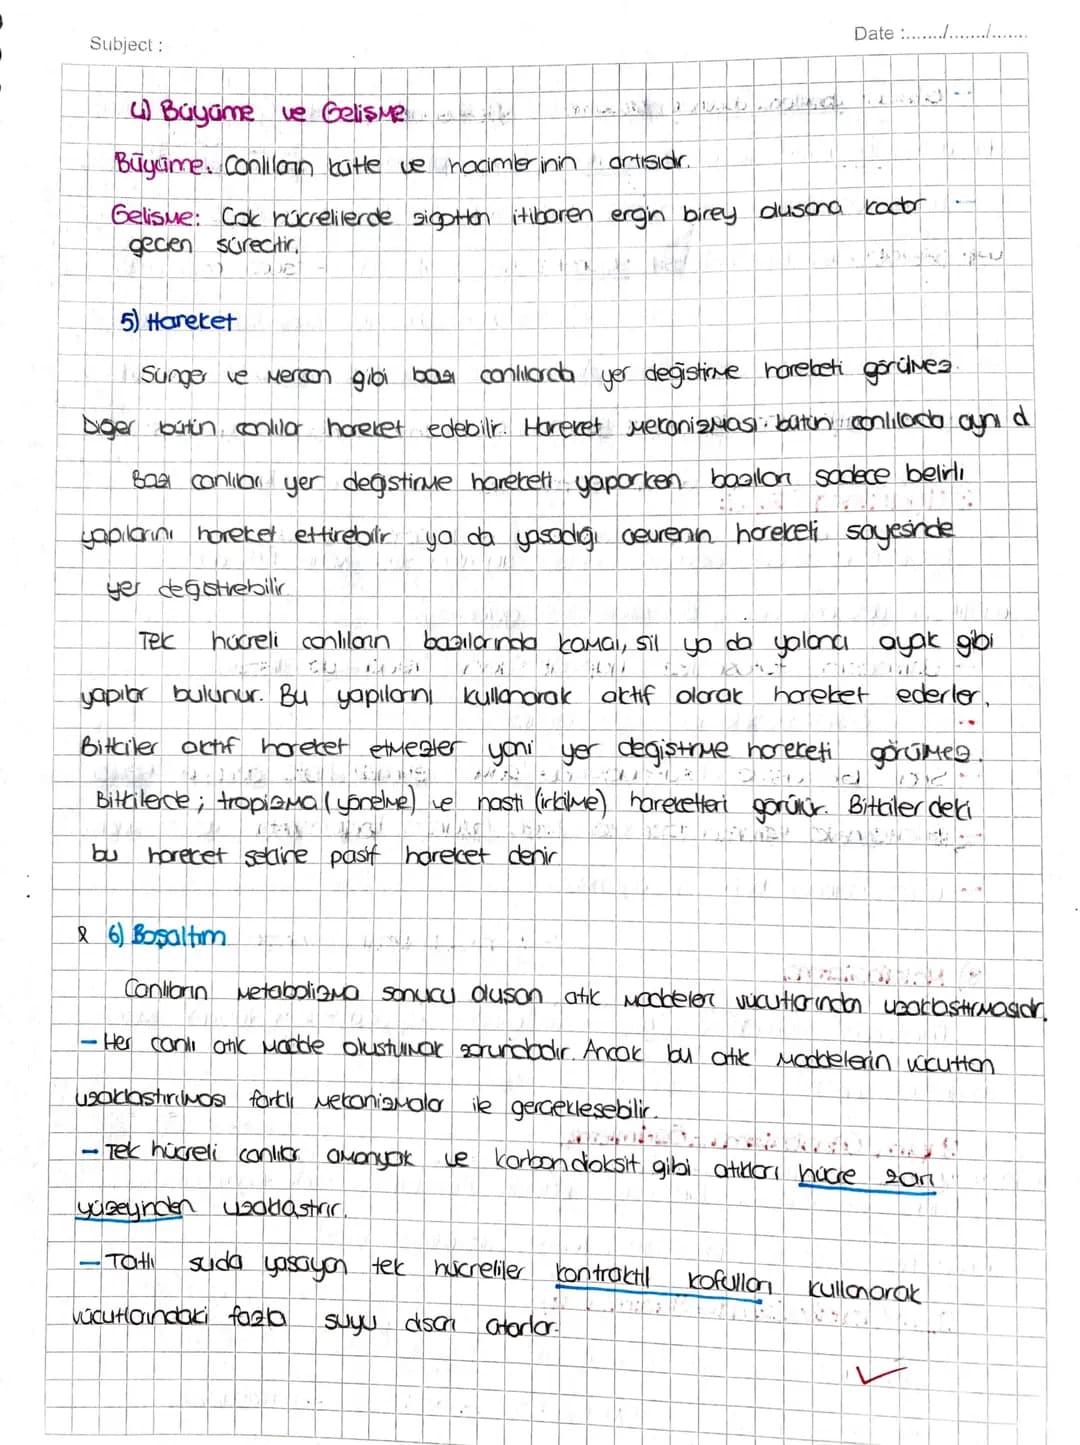 Subject :
Date :......./......./.......
4) Büyüme ve Gelişme
Büyüme: Canlıların kütle ve hacimlerinin artışıdır.
Gelişme: Çok hücrelilerde zigottan itibaren ergin birey oluşana kadar
geçen süreçtir.
5) Hareket
Sünger ve mercan gibi bazı canlılarda yer değiştirme hareketi görülmez.
Diğer bütün canlılar hareket edebilir. Hareket mekanizması bütün canlılarda aynı d
Bazı canlılar yer değiştirme hareketi yaparken bazıları sadece belirli
yapılarını hareket ettirebilir ya da yaşadığı çevrenin hareketi sayesinde
yer değiştirebilir
Tek hücreli canlıların bazılarında kamçı, sil ya da yalancı ayak gibi
yapılar bulunur. Bu yapılarını kullanarak aktif olarak hareket ederler.
Bitkiler aktif hareket etmezler yani yer değiştirme hareketi görülmez.
Bitkilerde; tropizma (yönelme) ve nasti (irkilme) hareketleri görülür. Bitkilerdeki
bu hareket şekline pasif hareket denir
6) Boşaltım
Canlıların metabolizma sonucu oluşan atık maddeleri vücutlarından uzaklaştırmasıdır.
- Her canlı atık madde oluşturmak zorundadır. Ancak bu atık maddelerin vücuttan
uzaklaştırılması farklı mekanizmalar ile gerçekleşebilir.
- Tek hücreli canlılar amonyak ve karbondioksit gibi atıkları hücre zarı
yüzeyinden uzaklaştırır.
- Tatlı suda yaşayan tek hücreliler kontraktil kofulları kullanarak
vücutlarındaki fazla suyu dışarı atarlar.